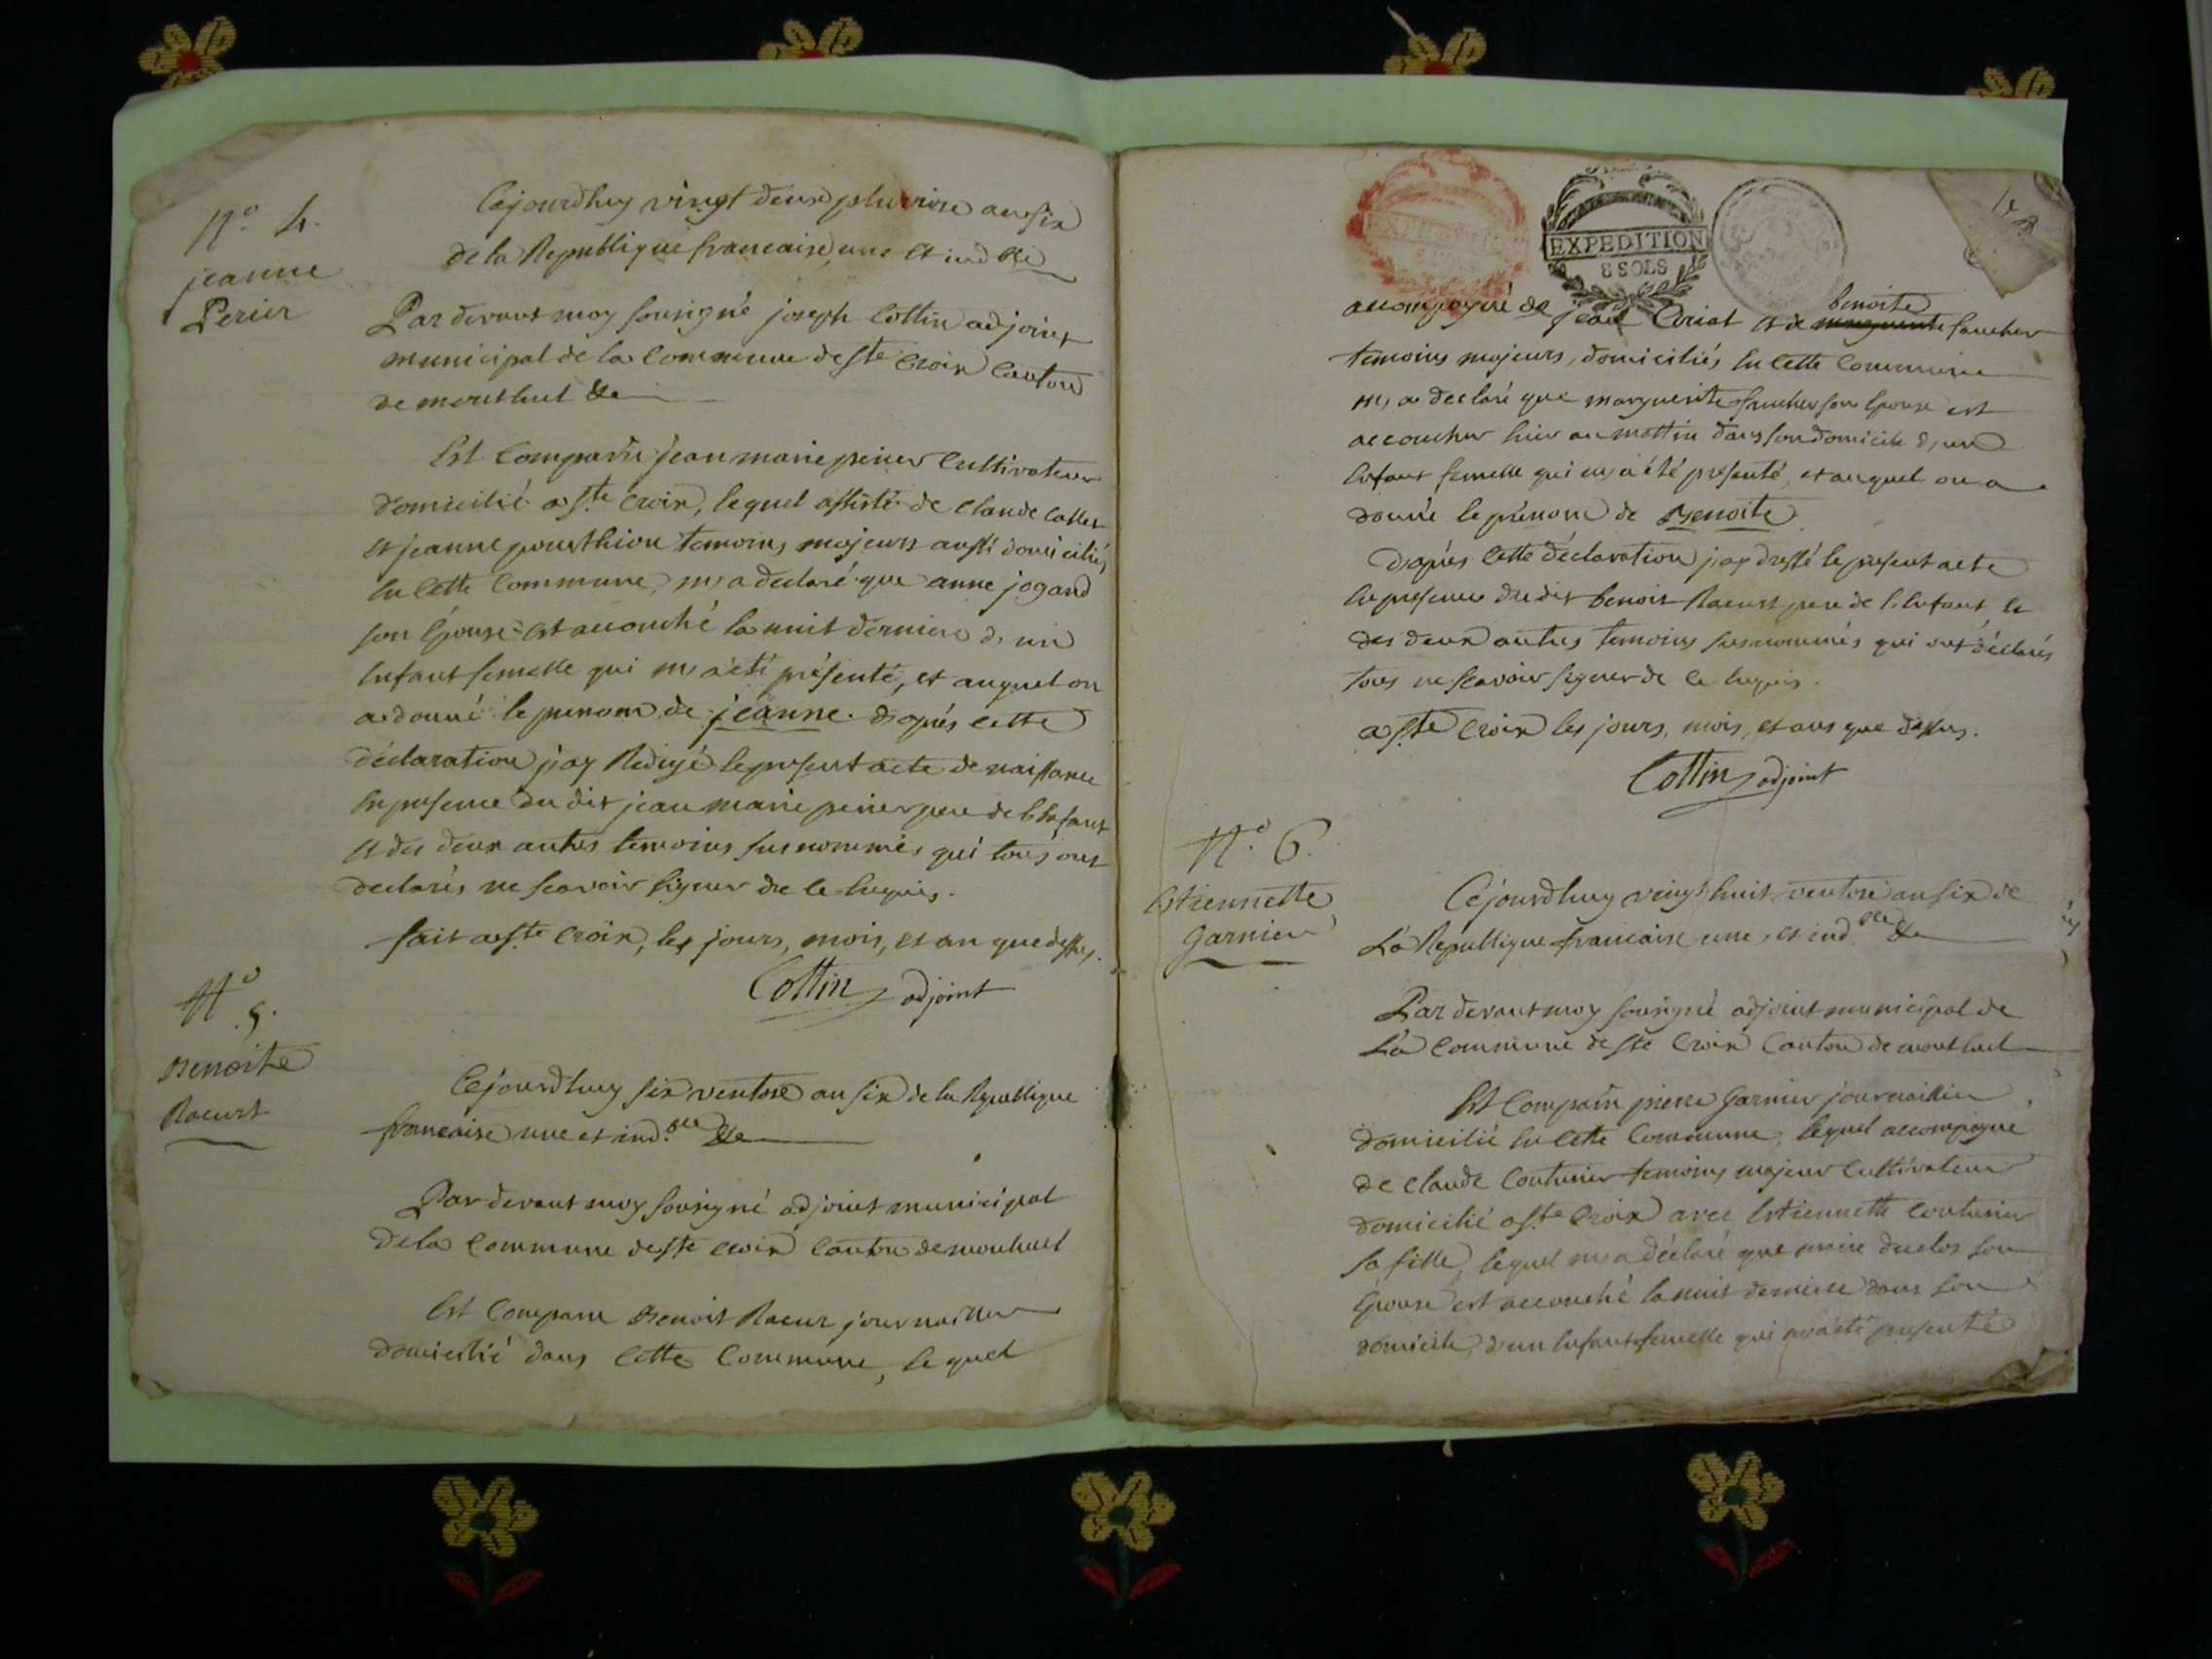 N.º 4.
jeanne
Perier
Cejourdhuy vingt deux pluviose an six
de la Republique francaise une et indble
Par devant moy sousigné joseph Cottin adjoint
municipal de la Commune de Ste Croix Canton
de montluel &a
Est Comparu jean marie perier Cultivateur
domicilié a Ste Croix, lequel assisté de Claude
et jeanne temoins majeurs aussi domiciliés
En Cette Commune, m'a declaré que anne jogand
son Epouse est accouché la nuit derniere d'un
Enfant femelle qui m'a été présenté, et auquel on
a donné le prenom de jeanne. d'aprés cette
déclaration j'ay Redigé le present acte de naissance
En presence du dit jean marie perier pere de l'Enfant
et des deux autres temoins susnommés qui tous ont
declarés ne scavoir signer de ce Enquis.
fait a Ste Croix, les jours, mois, et an que dessus.
Cottin adjoint
N.º 5.
Benoite
Racurt
Cejourdhuy six ventose an six de la Republique
francaise une et ind.ble &a
Par devant moy sousigné adjoint municipal
de la Commune de Ste Croix Canton de montluel
Est Comparu Benoit Racur journaillier
domicilié dans Cette Commune, lequel
EXPEDITION
8 SOLS
accompagné de jean et de benoite faucher
temoins majeurs, domiciliés En Cette Commune
m'a declaré que marguerite faucher son Epouse est
accoucher hier au mattin dans son domicile d'un
Enfant femelle qui m'a été présenté, et auquel on a
donné le prénom de Benoite
D'aprés Cette déclaration j'ay dressé le present acte
En presence du dit benoit Racurt pere de l'Enfant, et
des deux autres temoins susnommés qui ont déclarés
tous ne scavoir signer de ce Enquis.
a Ste Croix les jours, mois, et ans que dessus.
Cottin adjoint
N.º 6.
Estiennette
Garnier
Cejourdhuy vingt huit ventose an six de
La Republique francaise une, et ind.ble &a
Par devant moy sousigné adjoint municipal de
La Commune de Ste Croix Canton de montluel
Est Comparu pierre Garnier journaillier
domicilié En Cette Commune, lequel accompagné
de Claude Couturier temoins majeur Cultivateur
domicilié a Ste Croix avec Estiennette Couturier
sa fille, lequel m'a déclaré que marie duclos son
Epouse est accouché la nuit derniere dans son
domicile, d'un Enfant femelle qui m'a été presenté